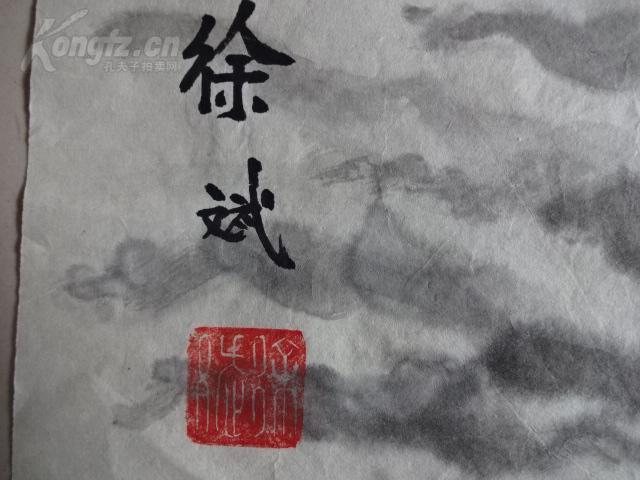 Kongfz.cn
孔夫子拍卖网
徐
斌